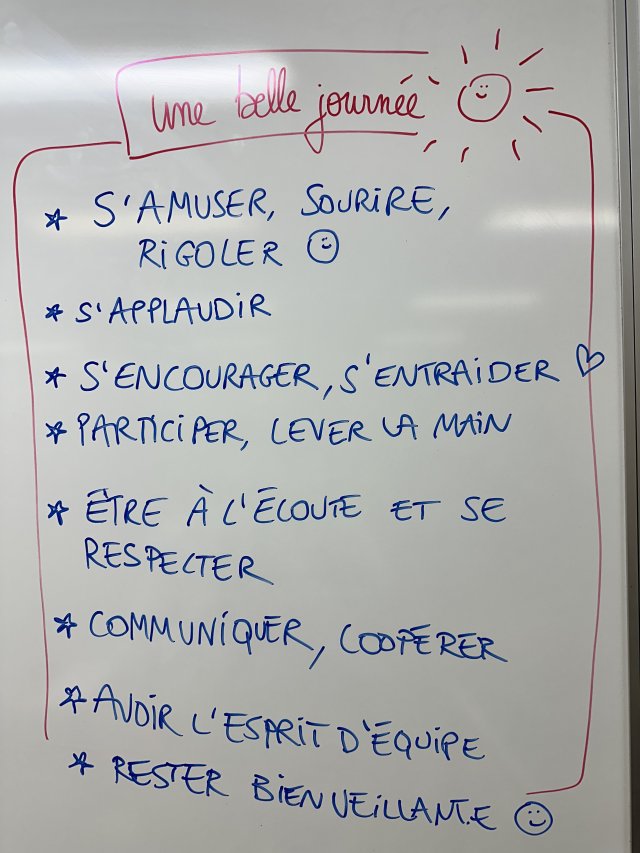 une belle journée
* S'AMUSER, SOURIRE,
RIGOLER
* S'APPLAUDIR
* S'ENCOURAGER, S'ENTRAIDER
* PARTICIPER, LEVER LA MAIN
* ÊTRE À L'ÉCOUTE ET SE
RESPECTER
* COMMUNIQUER, COOPÉRER
* AVOIR L'ESPRIT D'ÉQUIPE
* RESTER BIENVEILLANT.E